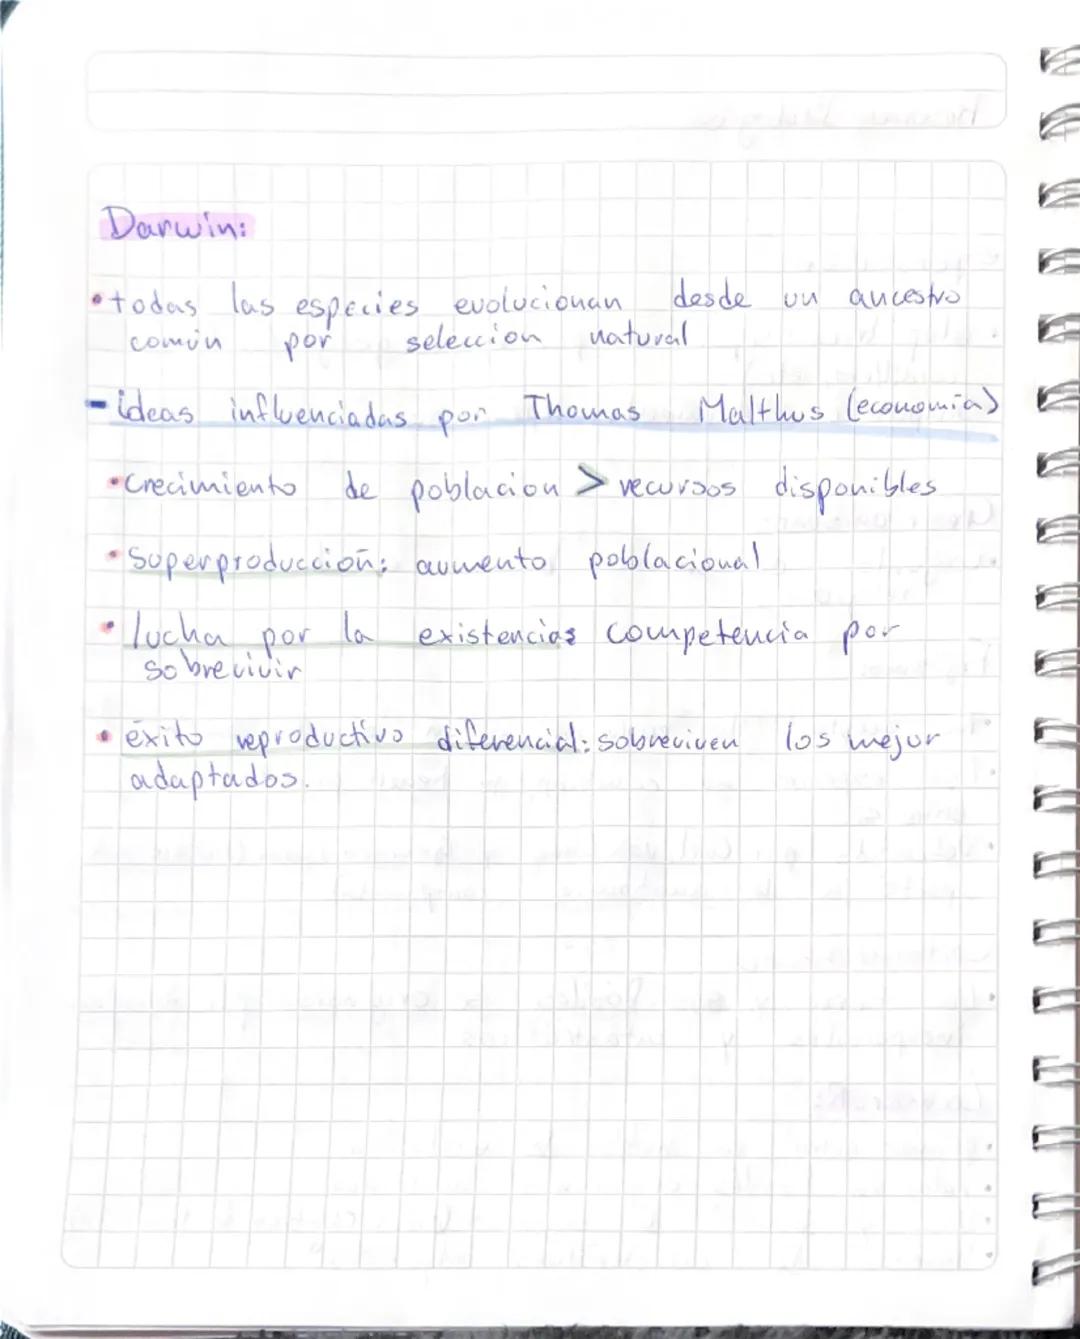 Darwin:
• todas las especies evolucionan desde un ancestro
común por seleccion natural
- ideas influenciadas por Thomas Malthus (economía)
• Crecimiento de poblacion > recursos disponibles
• Superproducción: aumento poblacional
• lucha por la existencia: competencia por
sobrevivir
• éxito reproductivo diferencial: sobreviven los mejor
adaptados.